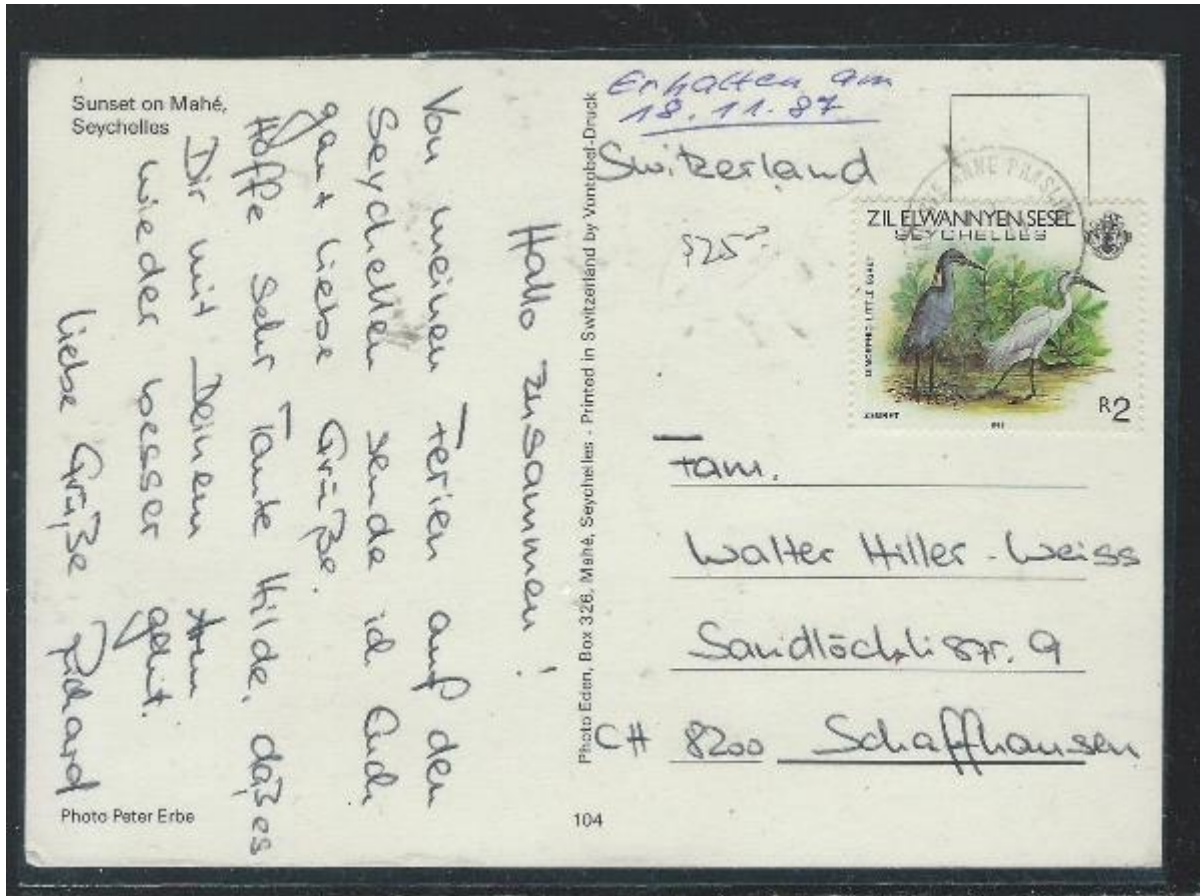 Sunset on Mahé,
Seychelles
Hallo zusammen!
Von meinen Ferien auf den
Seychellen sende ich Euch
ganz liebe Grüße.
Hoffe sehr Tante Hilde, daß es
Dir mit Deinem Arm
wieder besser geht.
Liebe Grüße Richard
Photo Peter Erbe
Photo Eden, Box 326, Mahé, Seychelles - Printed in Switzerland by Vontobel-Druck
104
Erhalten am
18.11.87
Switzerland
ANNE PRASLIN
ZIL ELWANNYEN SESEL
SEYCHELLES
DIMORPHIC LITTLE EGRET
R2
Fam.
Walter Hiller-Weiss
Sandlöchlistr. 9
CH 8200 Schaffhausen